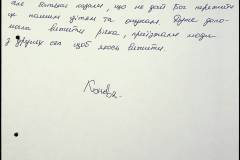 але батьки казали, що не дай Бог пережити
це нашим дітям та онукам. Дуже допо-
могла вижити річка, приїжджали люди
з других сел щоб якось вижити.
Кінець.